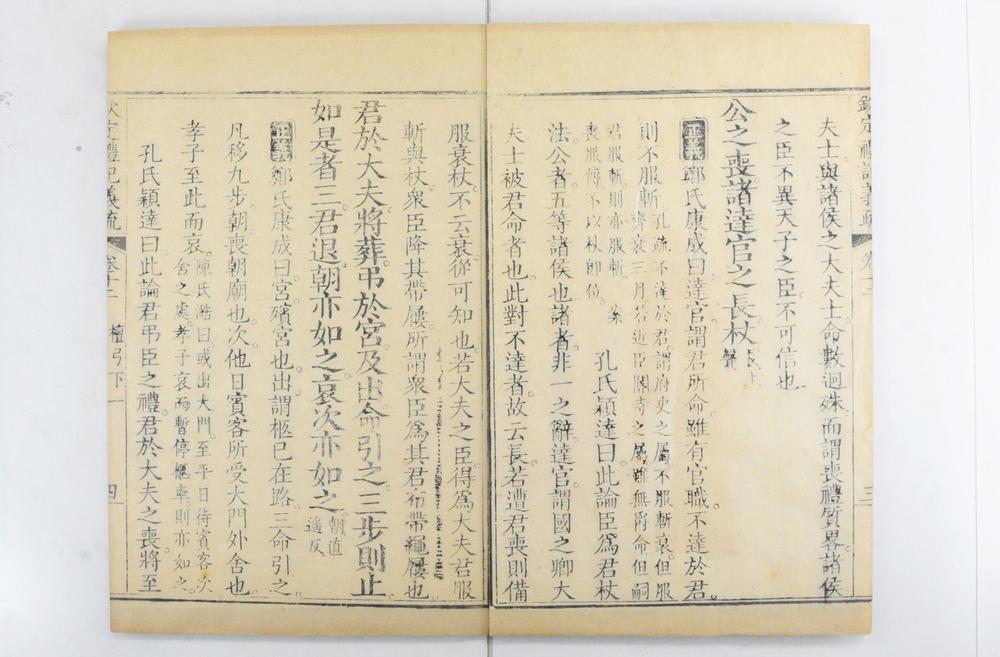 欽定禮記義疏 卷十二 三
夫士與諸侯之大夫士命數迥殊而謂喪禮質畧諸侯
之臣不異天子之臣不可信也
公之喪諸達官之長杖 長 上聲
正義 鄭氏康成曰達官謂君所命雖有官職不達於君
則不服斬 孔疏不達於君謂府史之屬不服斬衰但服
齊衰三月若近臣閽寺之屬雖無爵命但嗣
君服斬則亦服斬
喪服傳不以杖即位 孔氏穎達曰此論臣爲君杖
法公者五等諸侯也諸者非一之辭達官謂國之卿大
夫士被君命者也此對不達者故云長若遭君喪則備
服衰杖不云衰從可知也若大夫之臣得爲大夫君服
斬與杖衆臣降其帶屨所謂衆臣爲其君布帶繩屨也
君於大夫將葬弔於宮及出命引之三步則止
如是者三君退朝亦如之哀次亦如之 朝直
遙反
正義 鄭氏康成曰宮殯宮也出謂柩已在路三命引之
凡移九步朝喪朝廟也次他日賓客所受大門外舍也
孝子至此而哀 陳氏澔曰或出大門至平日待賓客次
舍之處孝子哀而暫停柩車則亦如之
孔氏穎達曰此論君弔臣之禮君於大夫之喪將至
欽定禮記義疏 卷十二 檀弓下一 四